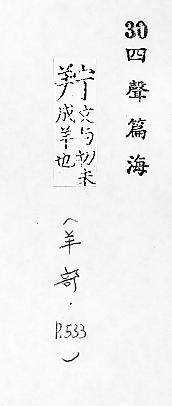 30 四聲篇海
羜 丈与切未
成羊也
(羊部・P.533)